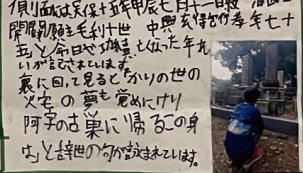 側面には天保十五年甲辰七月十一日
開闢願主毛利十世 中興玄得 行孝年七十
五」と今日の墓となった年
が記されています。
裏に回って見ると「かりの世の
火宅の夢も覚めにけり
阿字の古巣に帰るこの身
は」と辞世の句が詠まれています。